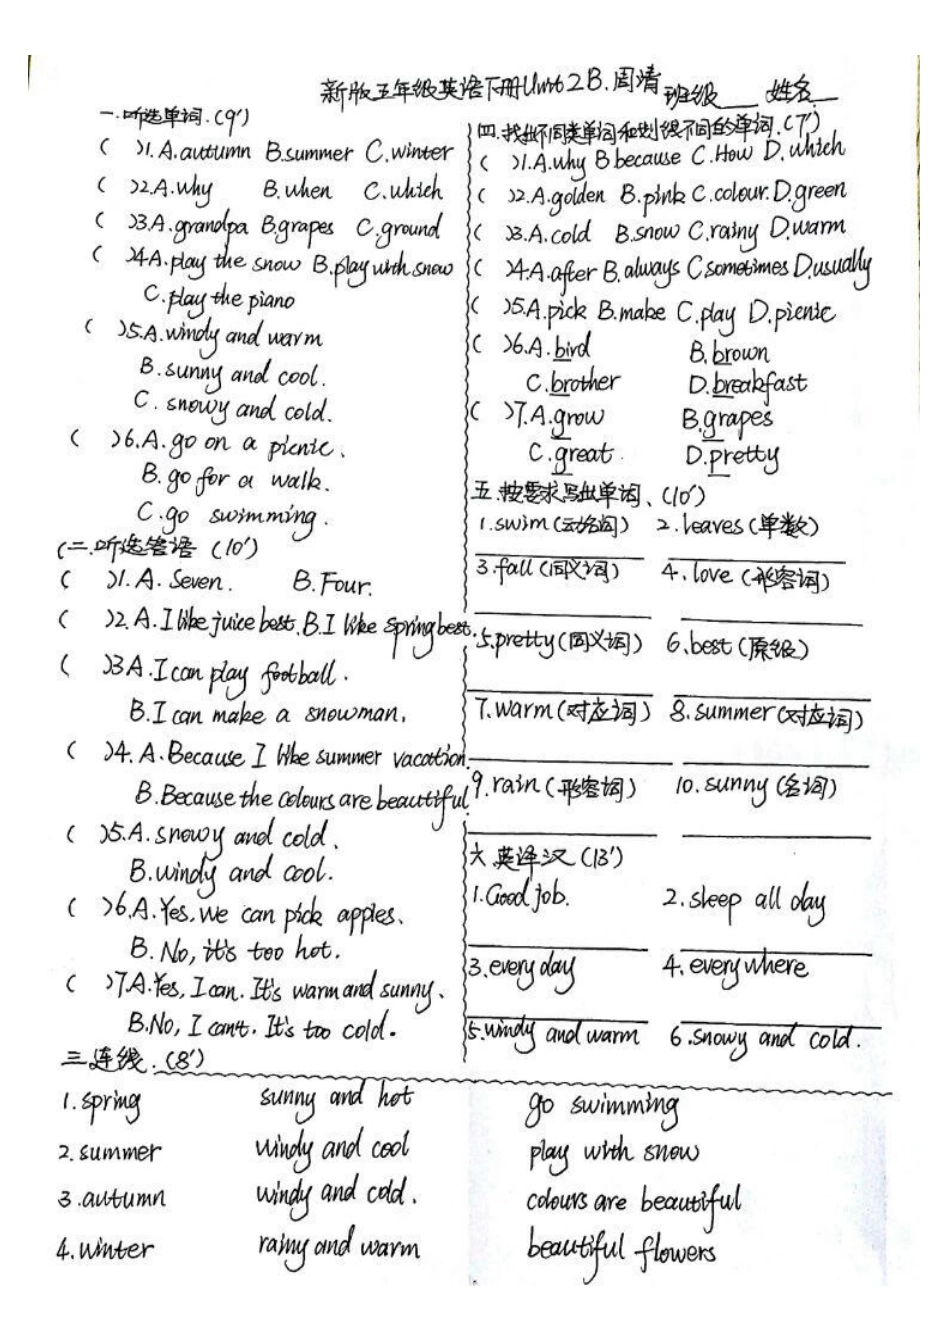 新版五年级英语下册Unit2B.周清 班级___ 姓名___
一.听选单词.(9')
( )1.A.autumn B.summer C.winter
( )2.A.why B.when C.which
( )3.A.grandpa B.grapes C.ground
( )4A.play the snow B.play with snow
C.play the piano
( )5.A.windy and warm
B.sunny and cool.
C.snowy and cold.
( )6.A.go on a picnic.
B.go for a walk.
C.go swimming.
(二.听选答语 (10')
( )1.A.Seven. B.Four.
( )2.A.I like juice best.B.I like spring best.
( )3A.I can play football.
B.I can make a snowman.
( )4.A.Because I like summer vacation.
B.Because the colours are beautiful.
( )5.A.snowy and cold.
B.windy and cool.
( )6.A.Yes,we can pick apples.
B.No,it's too hot.
( )7.A.Yes,I can.It's warm and sunny.
B.No,I can't.It's too cold.
三.连线.(8')
1.spring sunny and hot go swimming
2.summer windy and cool play with snow
3.autumn windy and cold. colours are beautiful
4.winter rainy and warm beautiful flowers
四.找出不同类单词和划线不同的单词.(7')
( )1.A.why B because C.How D.which
( )2.A.golden B.pink C.colour.D.green
( )3.A.cold B.snow C.rainy D.warm
( )4.A.after B.always C.sometimes D.usually
( )5.A.pick B.make C.play D.picnic
( )6.A.bird B.brown
C.brother D.breakfast
( )7.A.grow B.grapes
C.great. D.pretty
五.按要求写出单词、(10')
1.swim(动名词) 2.leaves(单数)
3.fall(同义词) 4.love(形容词)
5.pretty(同义词) 6.best(原级)
7.warm(对应词) 8.summer(对应词)
9.rain(形容词) 10.sunny(名词)
六.英译汉(13')
1.Good job. 2.sleep all day
3.every day 4.everywhere
5.windy and warm 6.snowy and cold.